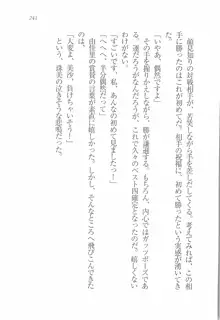 241
顔見知りの対戦相手が、苦笑しながら手を差しだしてくる。考えてみれば、この相
手に勝ったのは初めてだ。相手の祝福に、初めて勝ったという実感が湧いてき
「いやあ、偶然ですよ」
その手を握りかえしながら、勝が謙遜する。もちろん、内心ではガッツポーズであ
る。運だろうがなんだろうが、これで久々のベスト四確定となったのだ。嬉しくない
「なにいってんの、半分偶然だって」
「でも、すごいですっ。私、あんなの初めて見ました！」
由佳里の賞賛の言葉が素直に嬉しかった。しかし、そんなところへ飛びこんできた
「大変よ、美沙、負けちゃいそう！」
という、珠美の泣きそうな悲鳴だった。